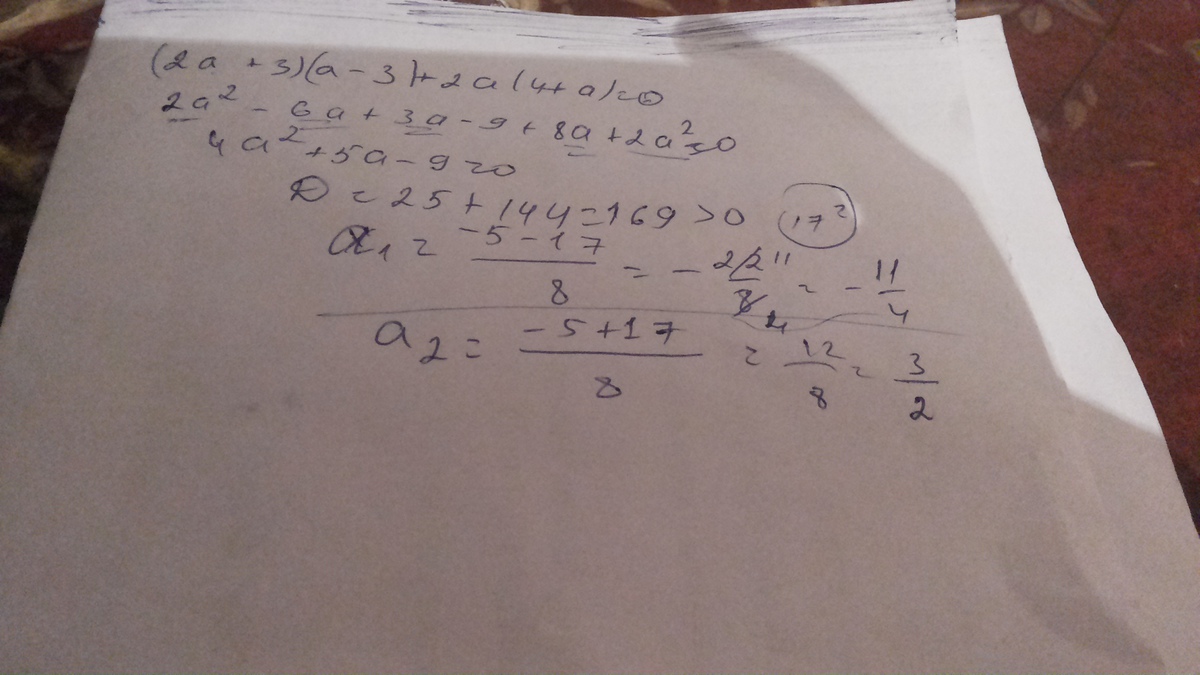 (2a + 3)(a - 3) + 2a(4 + a) = 0
2a² - 6a + 3a - 9 + 8a + 2a² = 0
4a² + 5a - 9 = 0
D = 25 + 144 = 169 > 0 (17²)
a₁ = (-5 - 17)/8 = - 22/8 11/4 = - 11/4
a₂ = (-5 + 17)/8 = 12/8 = 3/2